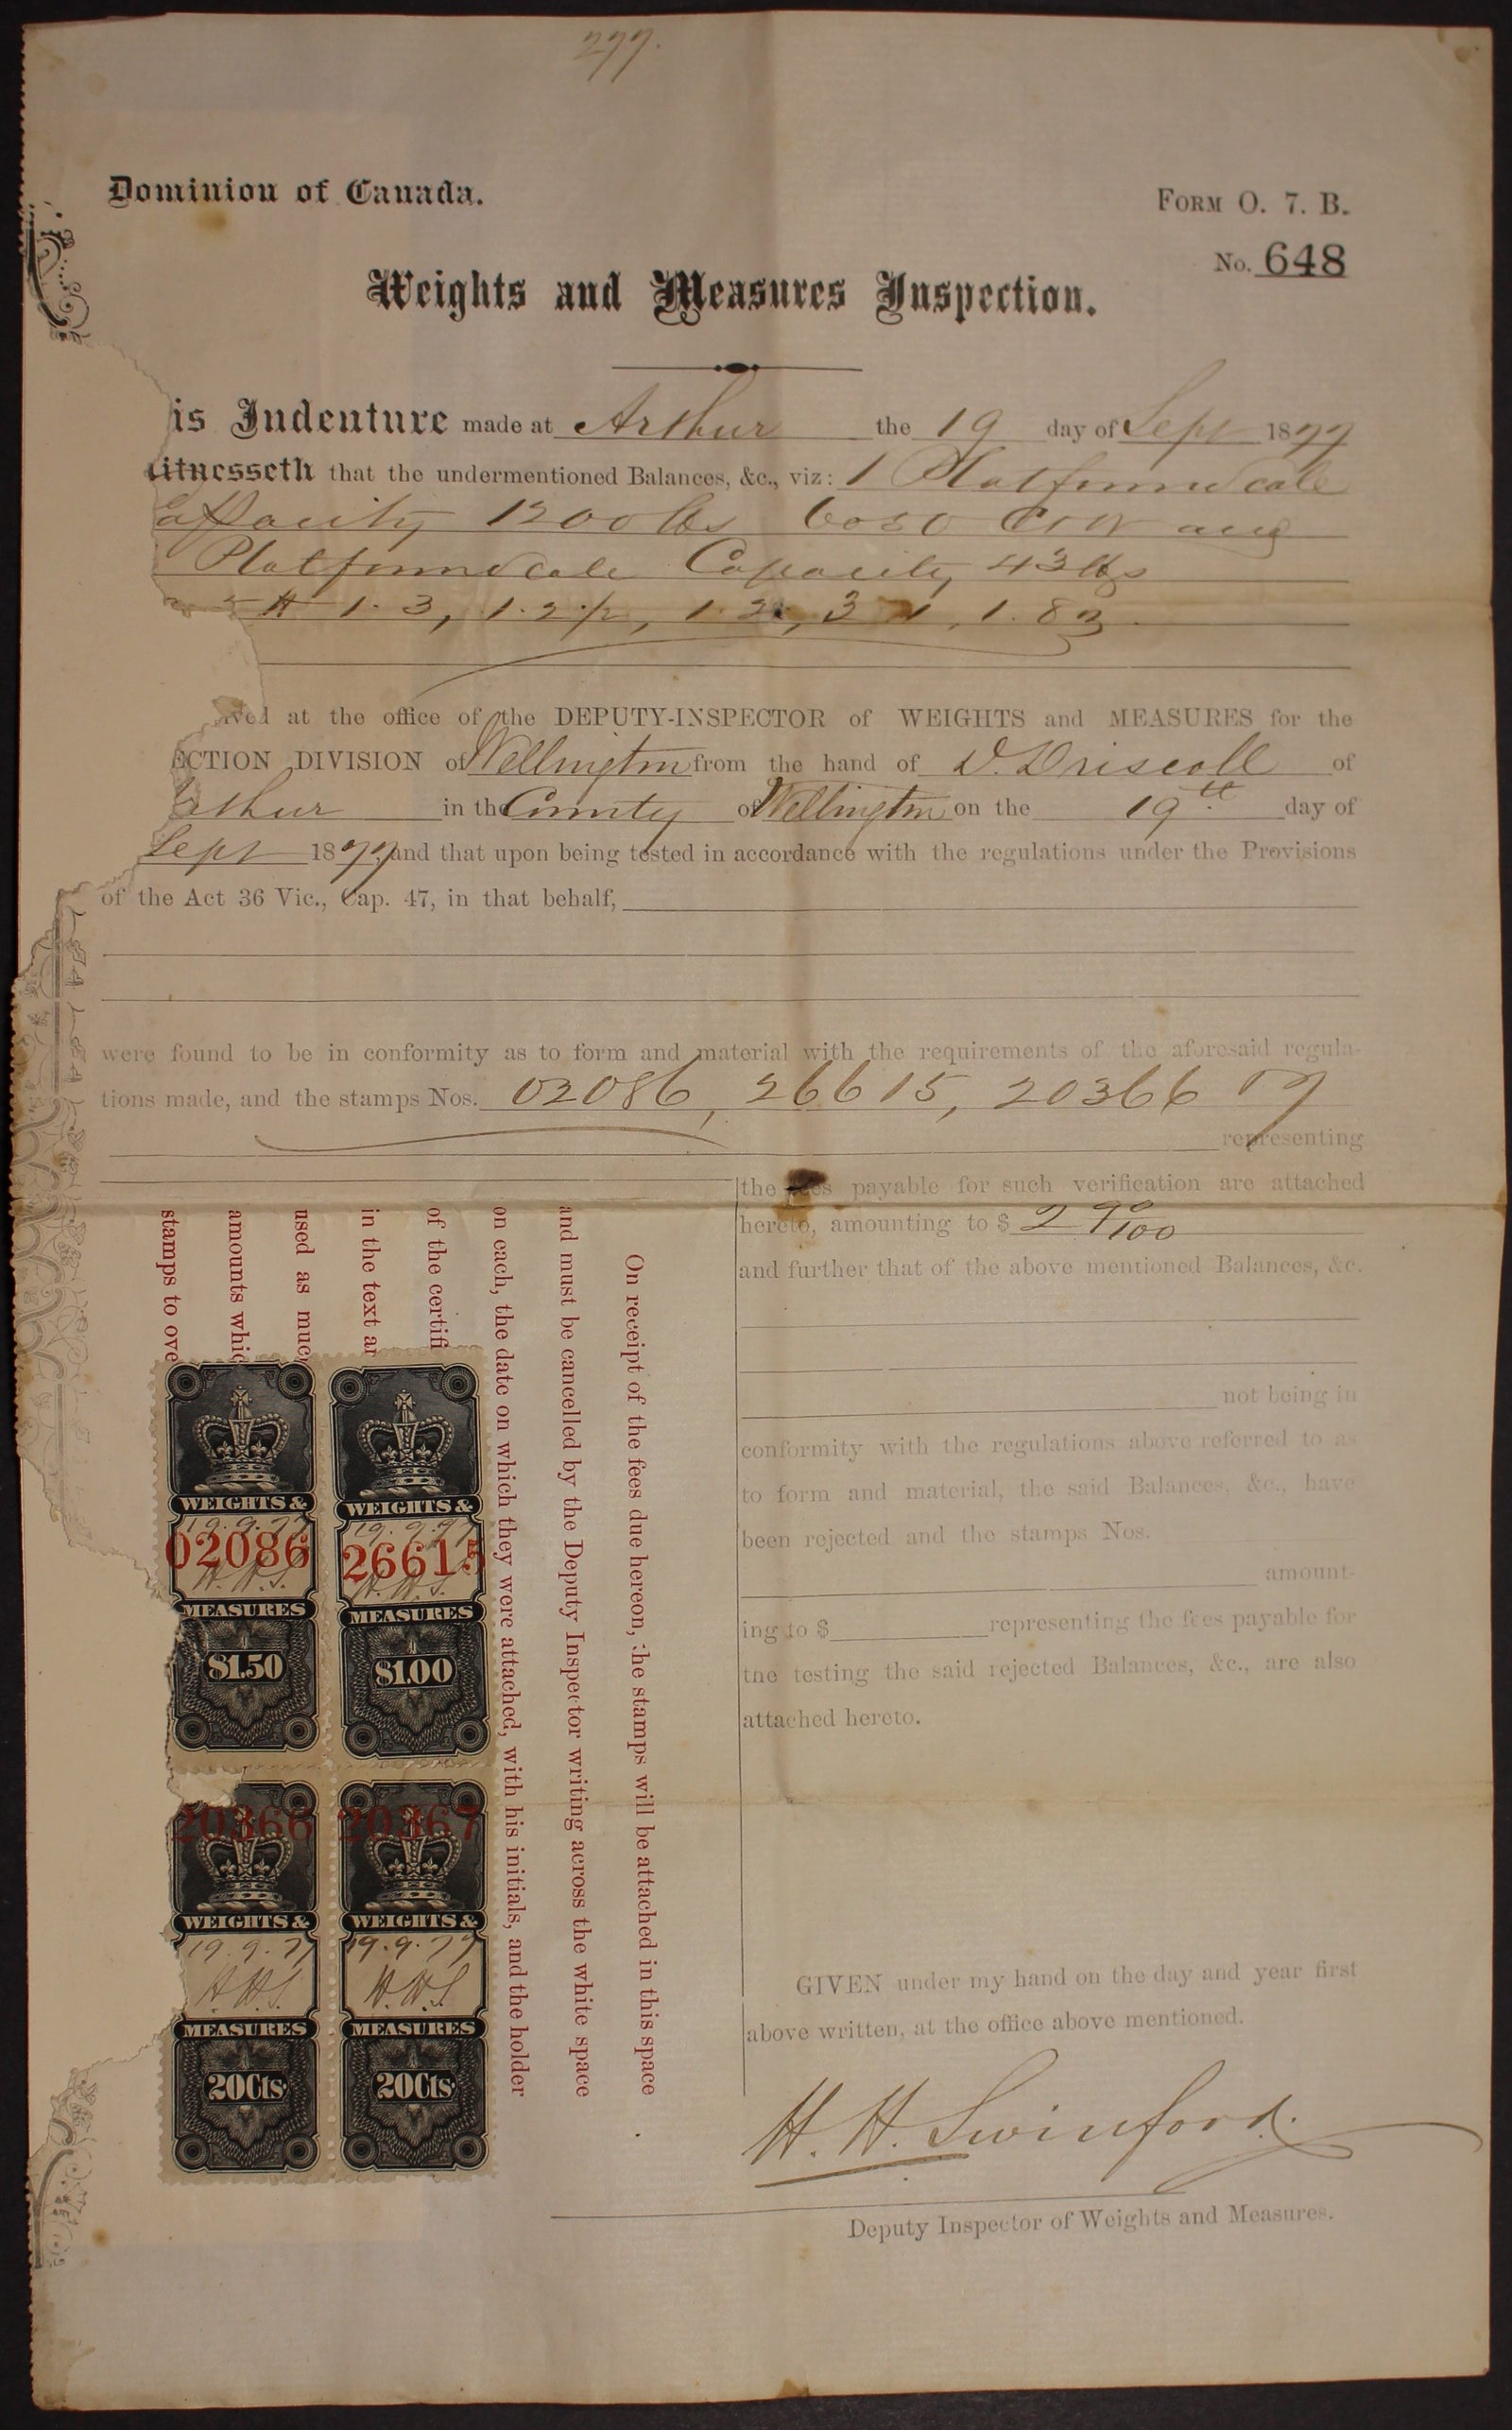 277.
Dominion of Canada.
FORM O. 7. B.
No. 648
Weights and Measures Inspection.
is Indenture made at Arthur the 19 day of Sept 1877
itnesseth that the undermentioned Balances, &c., viz: 1 Platform Scale
Capacity 1200 lbs
Platform Scale Capacity 43 lbs
1.3, 1.2
ived at the office of the DEPUTY-INSPECTOR of WEIGHTS and MEASURES for the
ECTION DIVISION of Wellington from the hand of D. Driscoll of
Arthur in the County of Wellington on the 19th day of
Sept 1877 and that upon being tested in accordance with the regulations under the Provisions
of the Act 36 Vic., Cap. 47, in that behalf,
were found to be in conformity as to form and material with the requirements of the aforesaid regula-
tions made, and the stamps Nos. 02086, 26615, 20366
representing
the fees payable for such verification are attached
hereto, amounting to $ 2 90/100
and further that of the above mentioned Balances, &c.
not being in
conformity with the regulations above referred to as
to form and material, the said Balances, &c., have
been rejected and the stamps Nos.
amount-
ing to $ representing the fees payable for
tne testing the said rejected Balances, &c., are also
attached hereto.
GIVEN under my hand on the day and year first
above written, at the office above mentioned.
H. H. Swinford.
Deputy Inspector of Weights and Measures.
On receipt of the fees due hereon, the stamps will be attached in this space
and must be cancelled by the Deputy Inspector writing across the white space
on each, the date on which they were attached, with his initials, and the holder
of the certifi
in the text ar
used as muc
amounts whic
stamps to ove
WEIGHTS &
19.9.77
02086
H.H.S.
MEASURES
$1.50
WEIGHTS &
19.9.77
26615
H.H.S.
MEASURES
$1.00
20366
WEIGHTS &
19.9.77
H.H.S.
MEASURES
20Cts.
20367
WEIGHTS &
19.9.77
H.H.S.
MEASURES
20Cts.